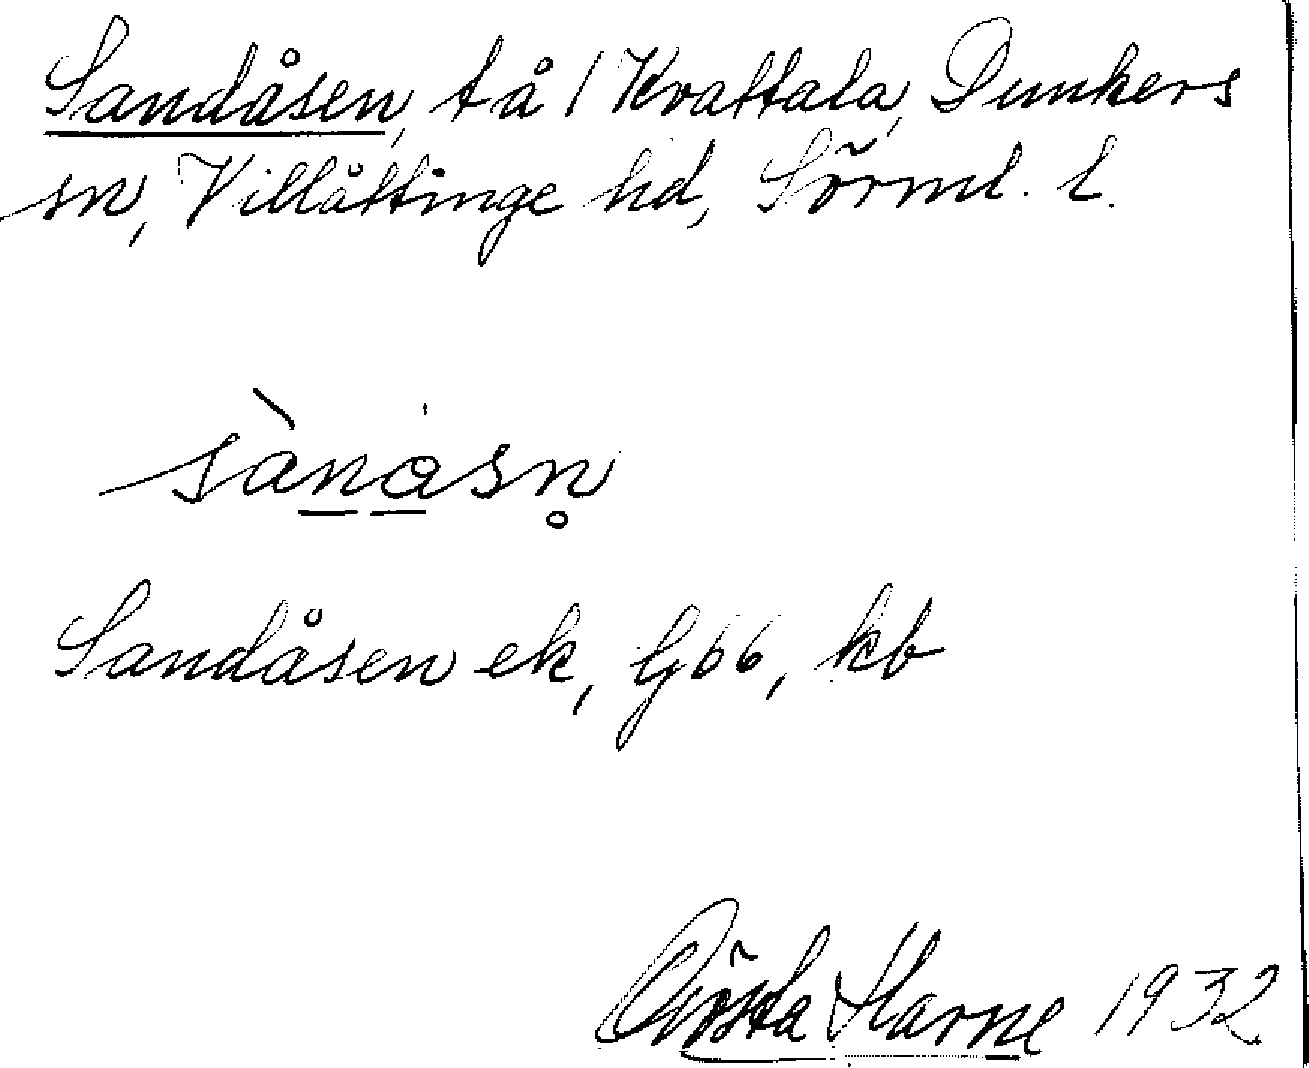 Sandåsen, t å 1 Kvattala, Dunkers
sn, Villåttinge hd, Sörml. l.
sànåsn̥
Sandåsen ek, Gbb, kb
Gösta Harne 1932